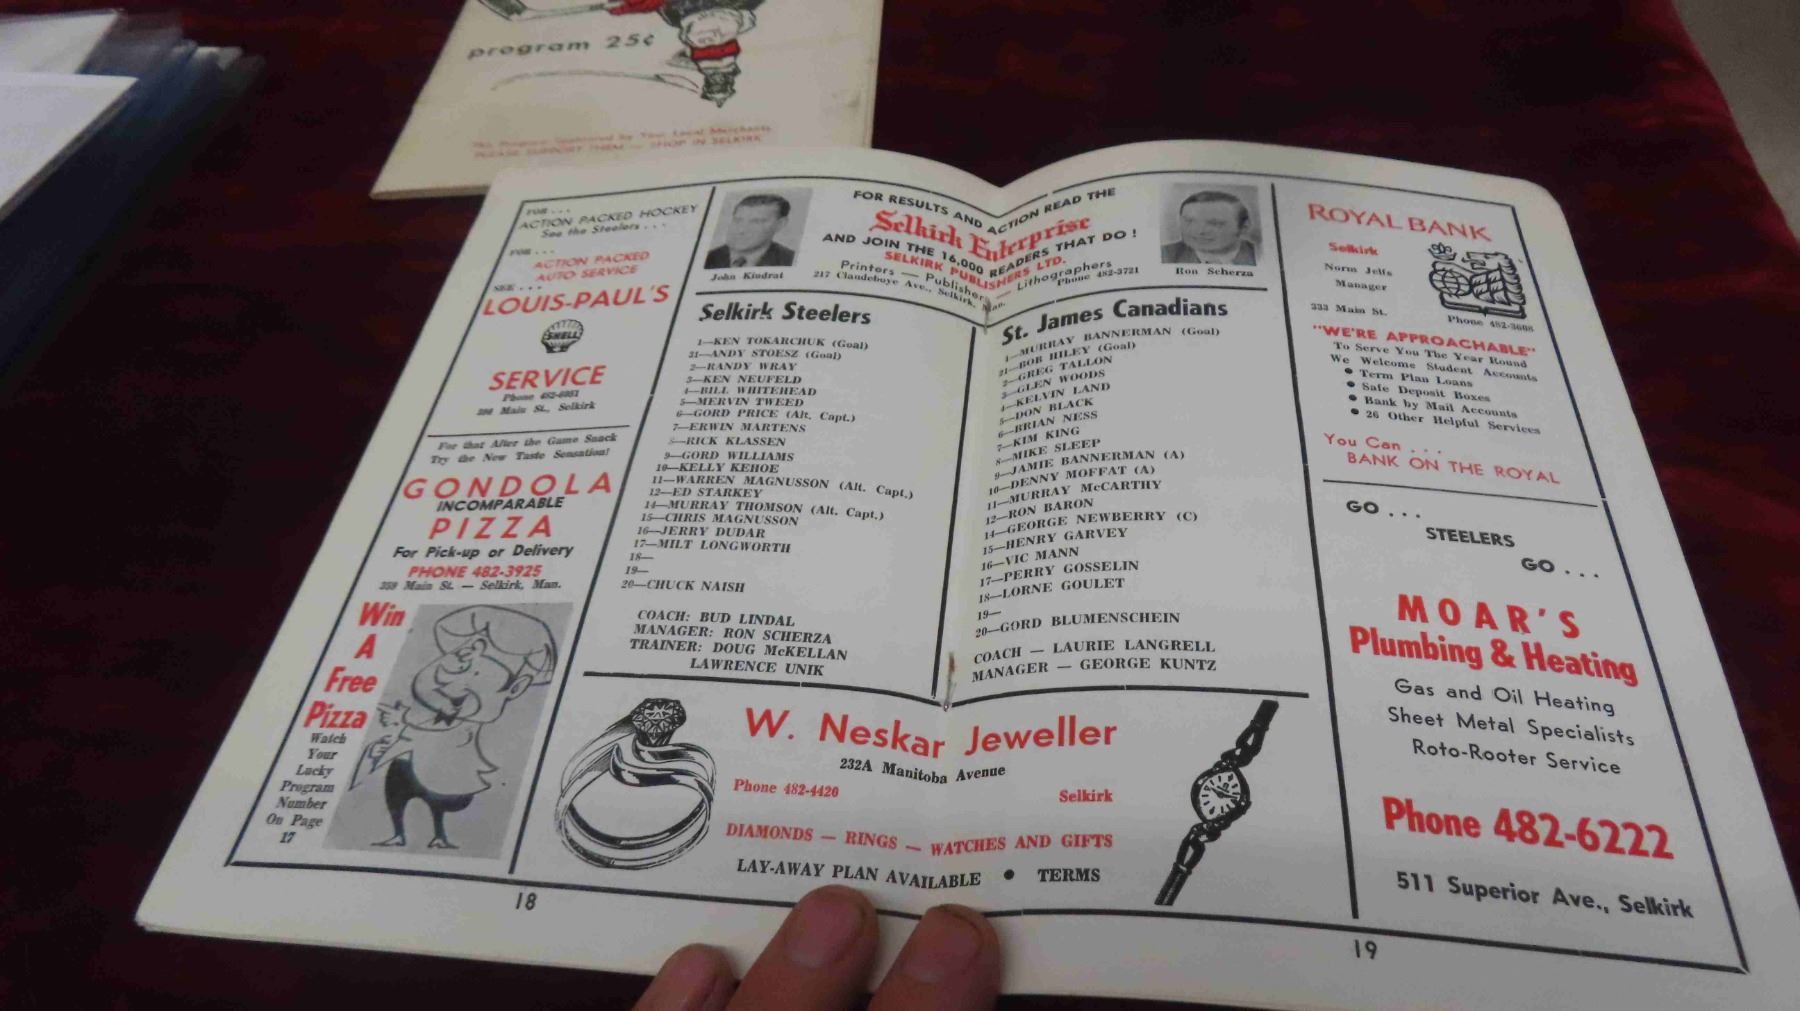 program 25¢
This Program Sponsored by Your Local Merchants
PLEASE SUPPORT THEM — SHOP IN SELKIRK
FOR . . .
ACTION PACKED HOCKEY
See the Steelers . . .
FOR . . .
ACTION PACKED
AUTO SERVICE
SEE . . .
LOUIS-PAUL'S
SHELL
SERVICE
Phone 482-6051
Main St., Selkirk
For that After the Game Snack
Try the New Taste Sensation!
GONDOLA
INCOMPARABLE
PIZZA
For Pick-up or Delivery
PHONE 482-3925
359 Main St. — Selkirk, Man.
Win
A
Free
Pizza
Watch
Your
Lucky
Program
Number
On Page
17
18
John Kindrat
FOR RESULTS AND ACTION READ THE
Selkirk Enterprise
AND JOIN THE 16,000 READERS THAT DO !
SELKIRK PUBLISHERS LTD.
Printers — Publishers — Lithographers
217 Clandeboye Ave., Selkirk, Man. Phone 482-3721
Ron Scherza
Selkirk Steelers
1—KEN TOKARCHUK (Goal)
31—ANDY STOESZ (Goal)
2—RANDY WRAY
3—KEN NEUFELD
4—BILL WHITEHEAD
5—MERVIN TWEED
6—GORD PRICE (Alt. Capt.)
7—ERWIN MARTENS
8—RICK KLASSEN
9—GORD WILLIAMS
10—KELLY KEHOE
11—WARREN MAGNUSSON (Alt. Capt.)
12—ED STARKEY
14—MURRAY THOMSON (Alt. Capt.)
15—CHRIS MAGNUSSON
16—JERRY DUDAR
17—MILT LONGWORTH
18—
19—
20—CHUCK NAISH
COACH: BUD LINDAL
MANAGER: RON SCHERZA
TRAINER: DOUG McKELLAN
LAWRENCE UNIK
St. James Canadians
1—MURRAY BANNERMAN (Goal)
21—BOB HILEY (Goal)
2—GREG TALLON
3—GLEN WOODS
4—KELVIN LAND
5—DON BLACK
6—BRIAN NESS
7—KIM KING
8—MIKE SLEEP
9—JAMIE BANNERMAN (A)
10—DENNY MOFFAT (A)
11—MURRAY McCARTHY
12—RON BARON
14—GEORGE NEWBERRY (C)
15—HENRY GARVEY
16—VIC MANN
17—PERRY GOSSELIN
18—LORNE GOULET
19—
20—GORD BLUMENSCHEIN
COACH — LAURIE LANGRELL
MANAGER — GEORGE KUNTZ
W. Neskar Jeweller
232A Manitoba Avenue
Phone 482-4420 Selkirk
DIAMONDS — RINGS — WATCHES AND GIFTS
LAY-AWAY PLAN AVAILABLE ● TERMS
ROYAL BANK
Selkirk
Norm Jelfs
Manager
333 Main St.
Phone 482-3608
"WE'RE APPROACHABLE"
To Serve You The Year Round
We Welcome Student Accounts
● Term Plan Loans
● Safe Deposit Boxes
● Bank by Mail Accounts
● 26 Other Helpful Services
You Can . . .
BANK ON THE ROYAL
GO . . .
STEELERS
GO . . .
MOAR'S
Plumbing & Heating
Gas and Oil Heating
Sheet Metal Specialists
Roto-Rooter Service
Phone 482-6222
511 Superior Ave., Selkirk
19